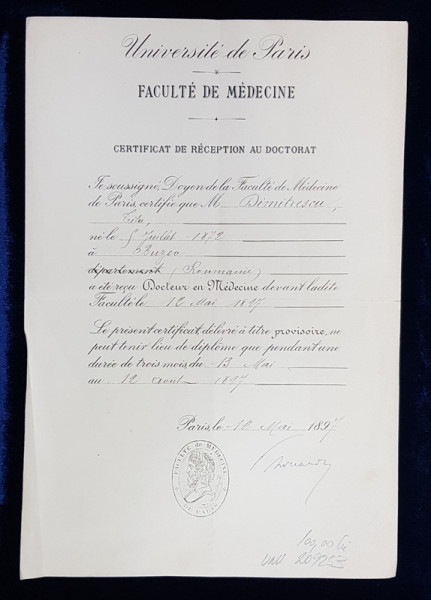 Université de Paris
FACULTÉ DE MÉDECINE
CERTIFICAT DE RÉCEPTION AU DOCTORAT
Je soussigné, Doyen de la Faculté de Médecine
de Paris, certifie que M Dimitrescu,
Titu,
né le Juillet 1872
à Buzeo
département (Roumanie)
a été reçu Docteur en Médecine devant ladite
Faculté le 12 Mai 1897
Le présent certificat, délivré à titre provisoire, ne
peut tenir lieu de diplôme que pendant une
durée de trois mois, du 13 Mai
au 12 Août 1897
Paris, le 12 Mai 1897
FACULTÉ de MÉDECINE
DE PARIS